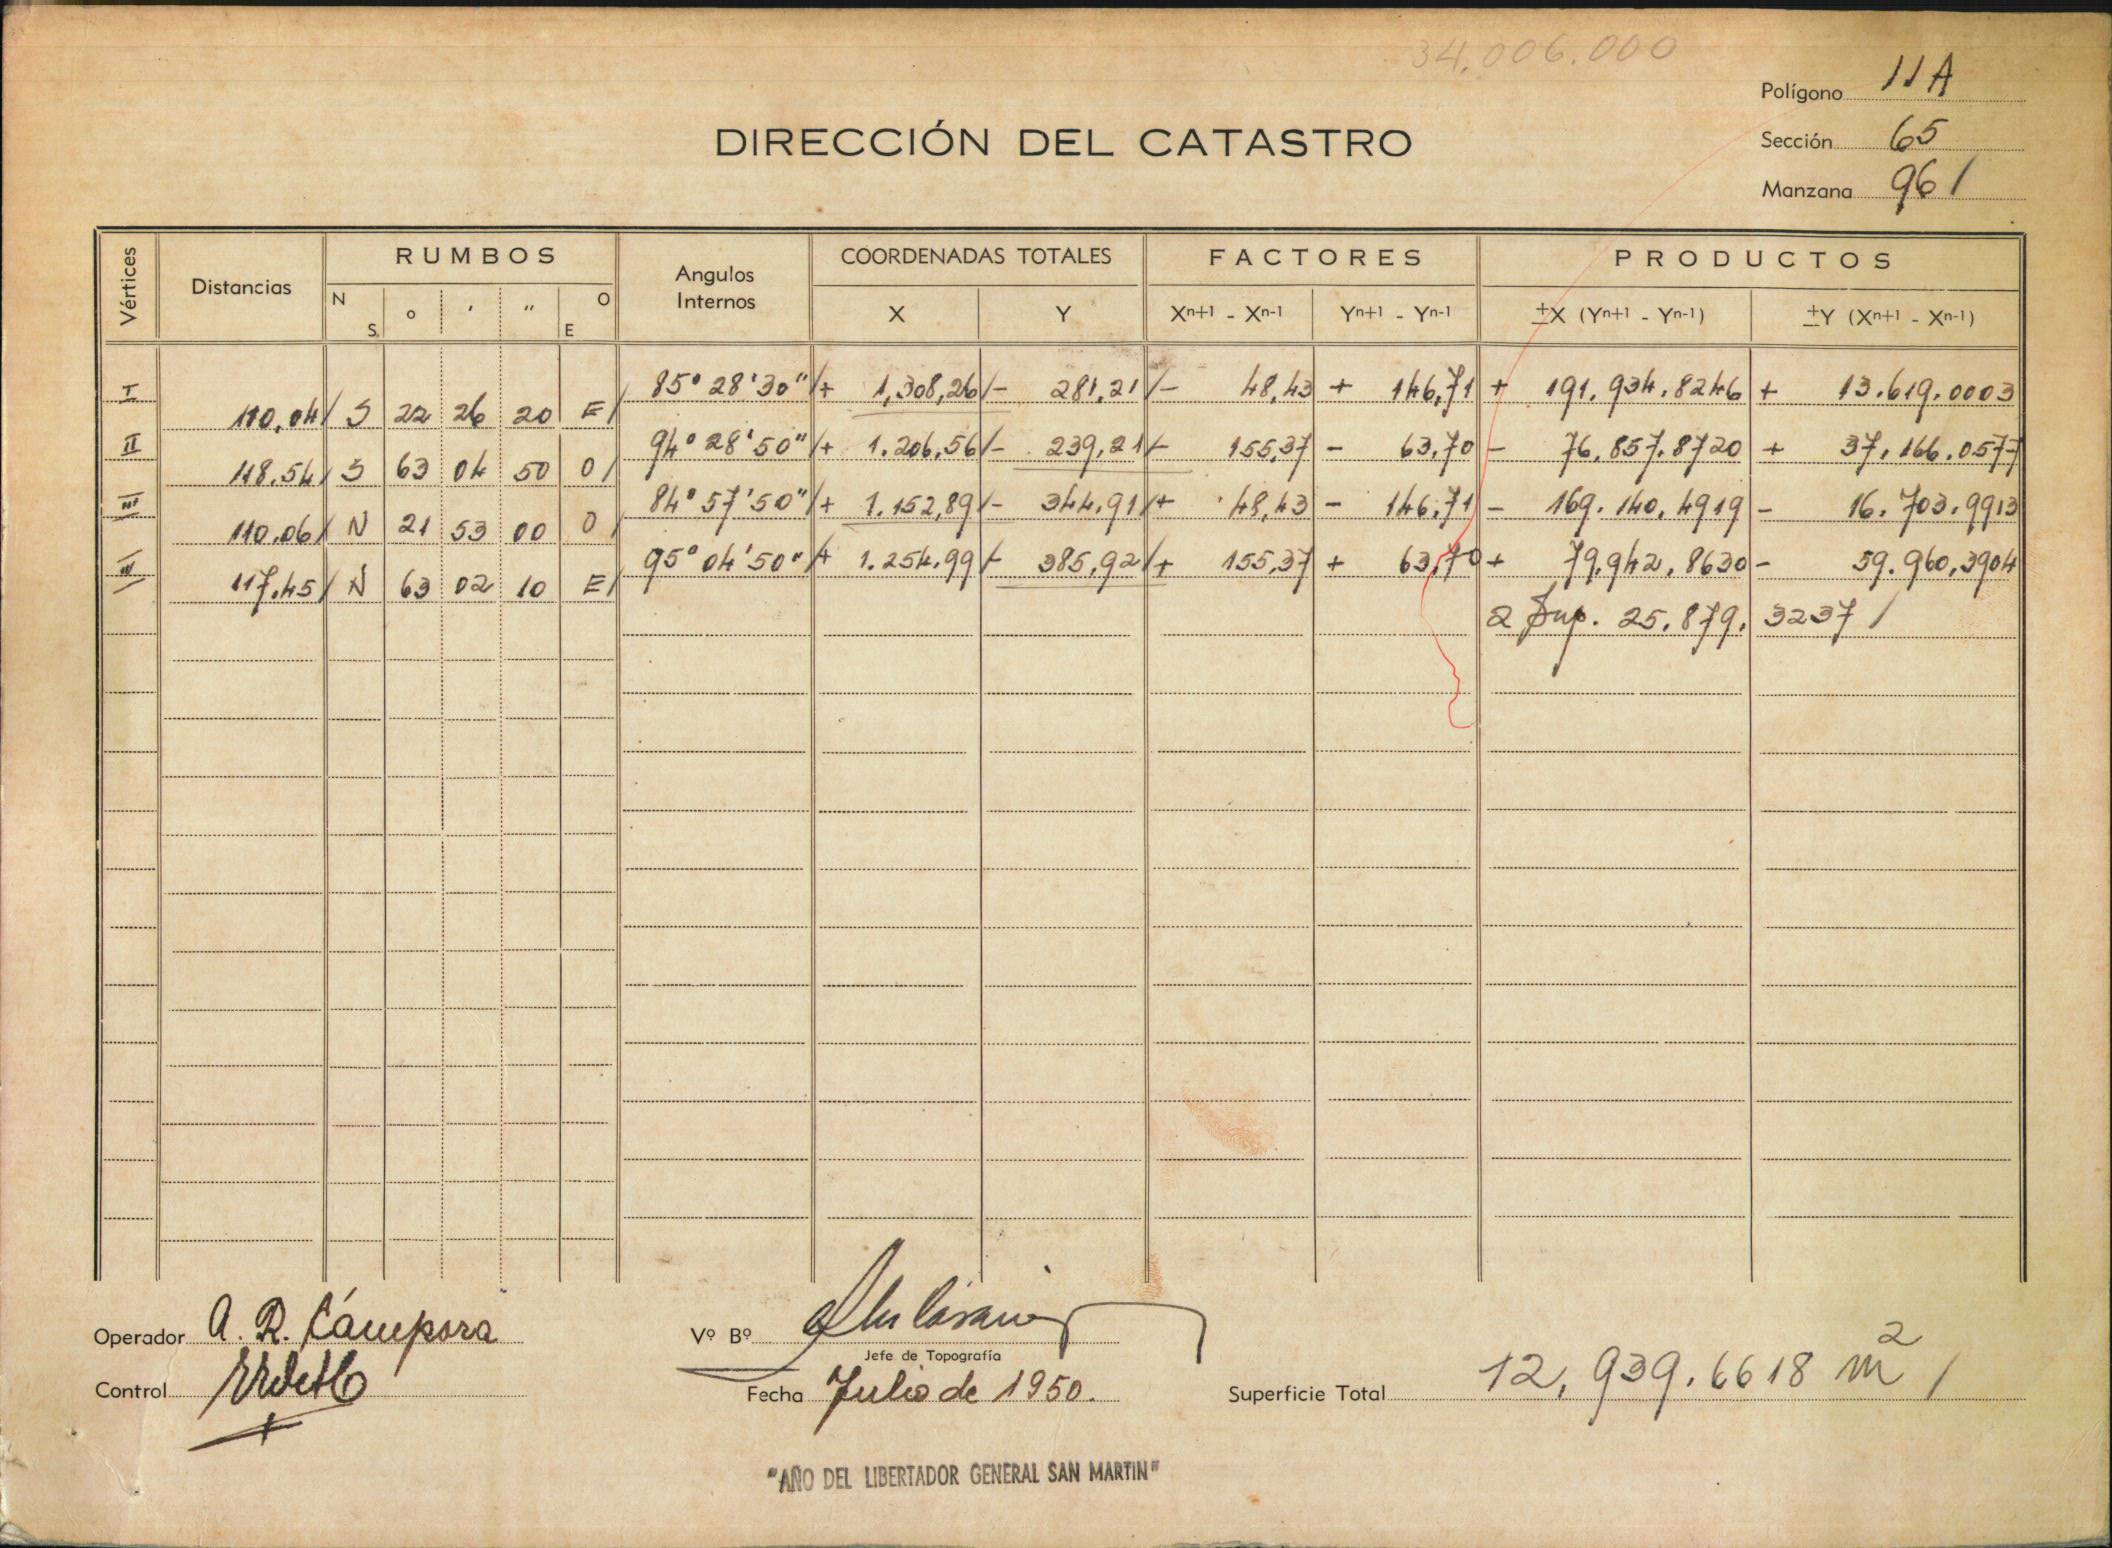 34.006.000
Polígono 11A
DIRECCIÓN DEL CATASTRO
Sección 65
Manzana 961
Vértices Distancias RUMBOS Angulos Internos COORDENADAS TOTALES FACTORES PRODUCTOS
N S. o ′ ″ O E X Y Xn+1 - Xn-1 Yn+1 - Yn-1 ±X (Yn+1 - Yn-1) ±Y (Xn+1 - Xn-1)
I 85° 28' 30" /+ 1,308,26 /- 281,21 /- 48,43 + 146,71 + 191.934.8246 + 13.619.0003
110.04/ S 22 26 20 E/
II 94° 28' 50" /+ 1.206,56 /- 239,21 /- 155,37 - 63,70 - 76.857.8720 + 37.166.0577
118.54/ S 63 04 50 O/
III 84° 57' 50" /+ 1.152,89 /- 344,91 /+ 48,43 - 146,71 - 169.140.4919 - 16.703.9913
110.06/ N 21 53 00 O/
IV 95° 04' 50" /+ 1.254,99 /- 385,92 /+ 155,37 + 63,70 + 79.942.8630 - 59.960,3904
117.45/ N 63 02 10 E/
2 Sup. 25.879. 3237 /
Operador A. R. Cámpora
Vº Bº
Jefe de Topografía
Control
Fecha Julio de 1950.
Superficie Total 12,939.6618 m2 /
"AÑO DEL LIBERTADOR GENERAL SAN MARTIN"